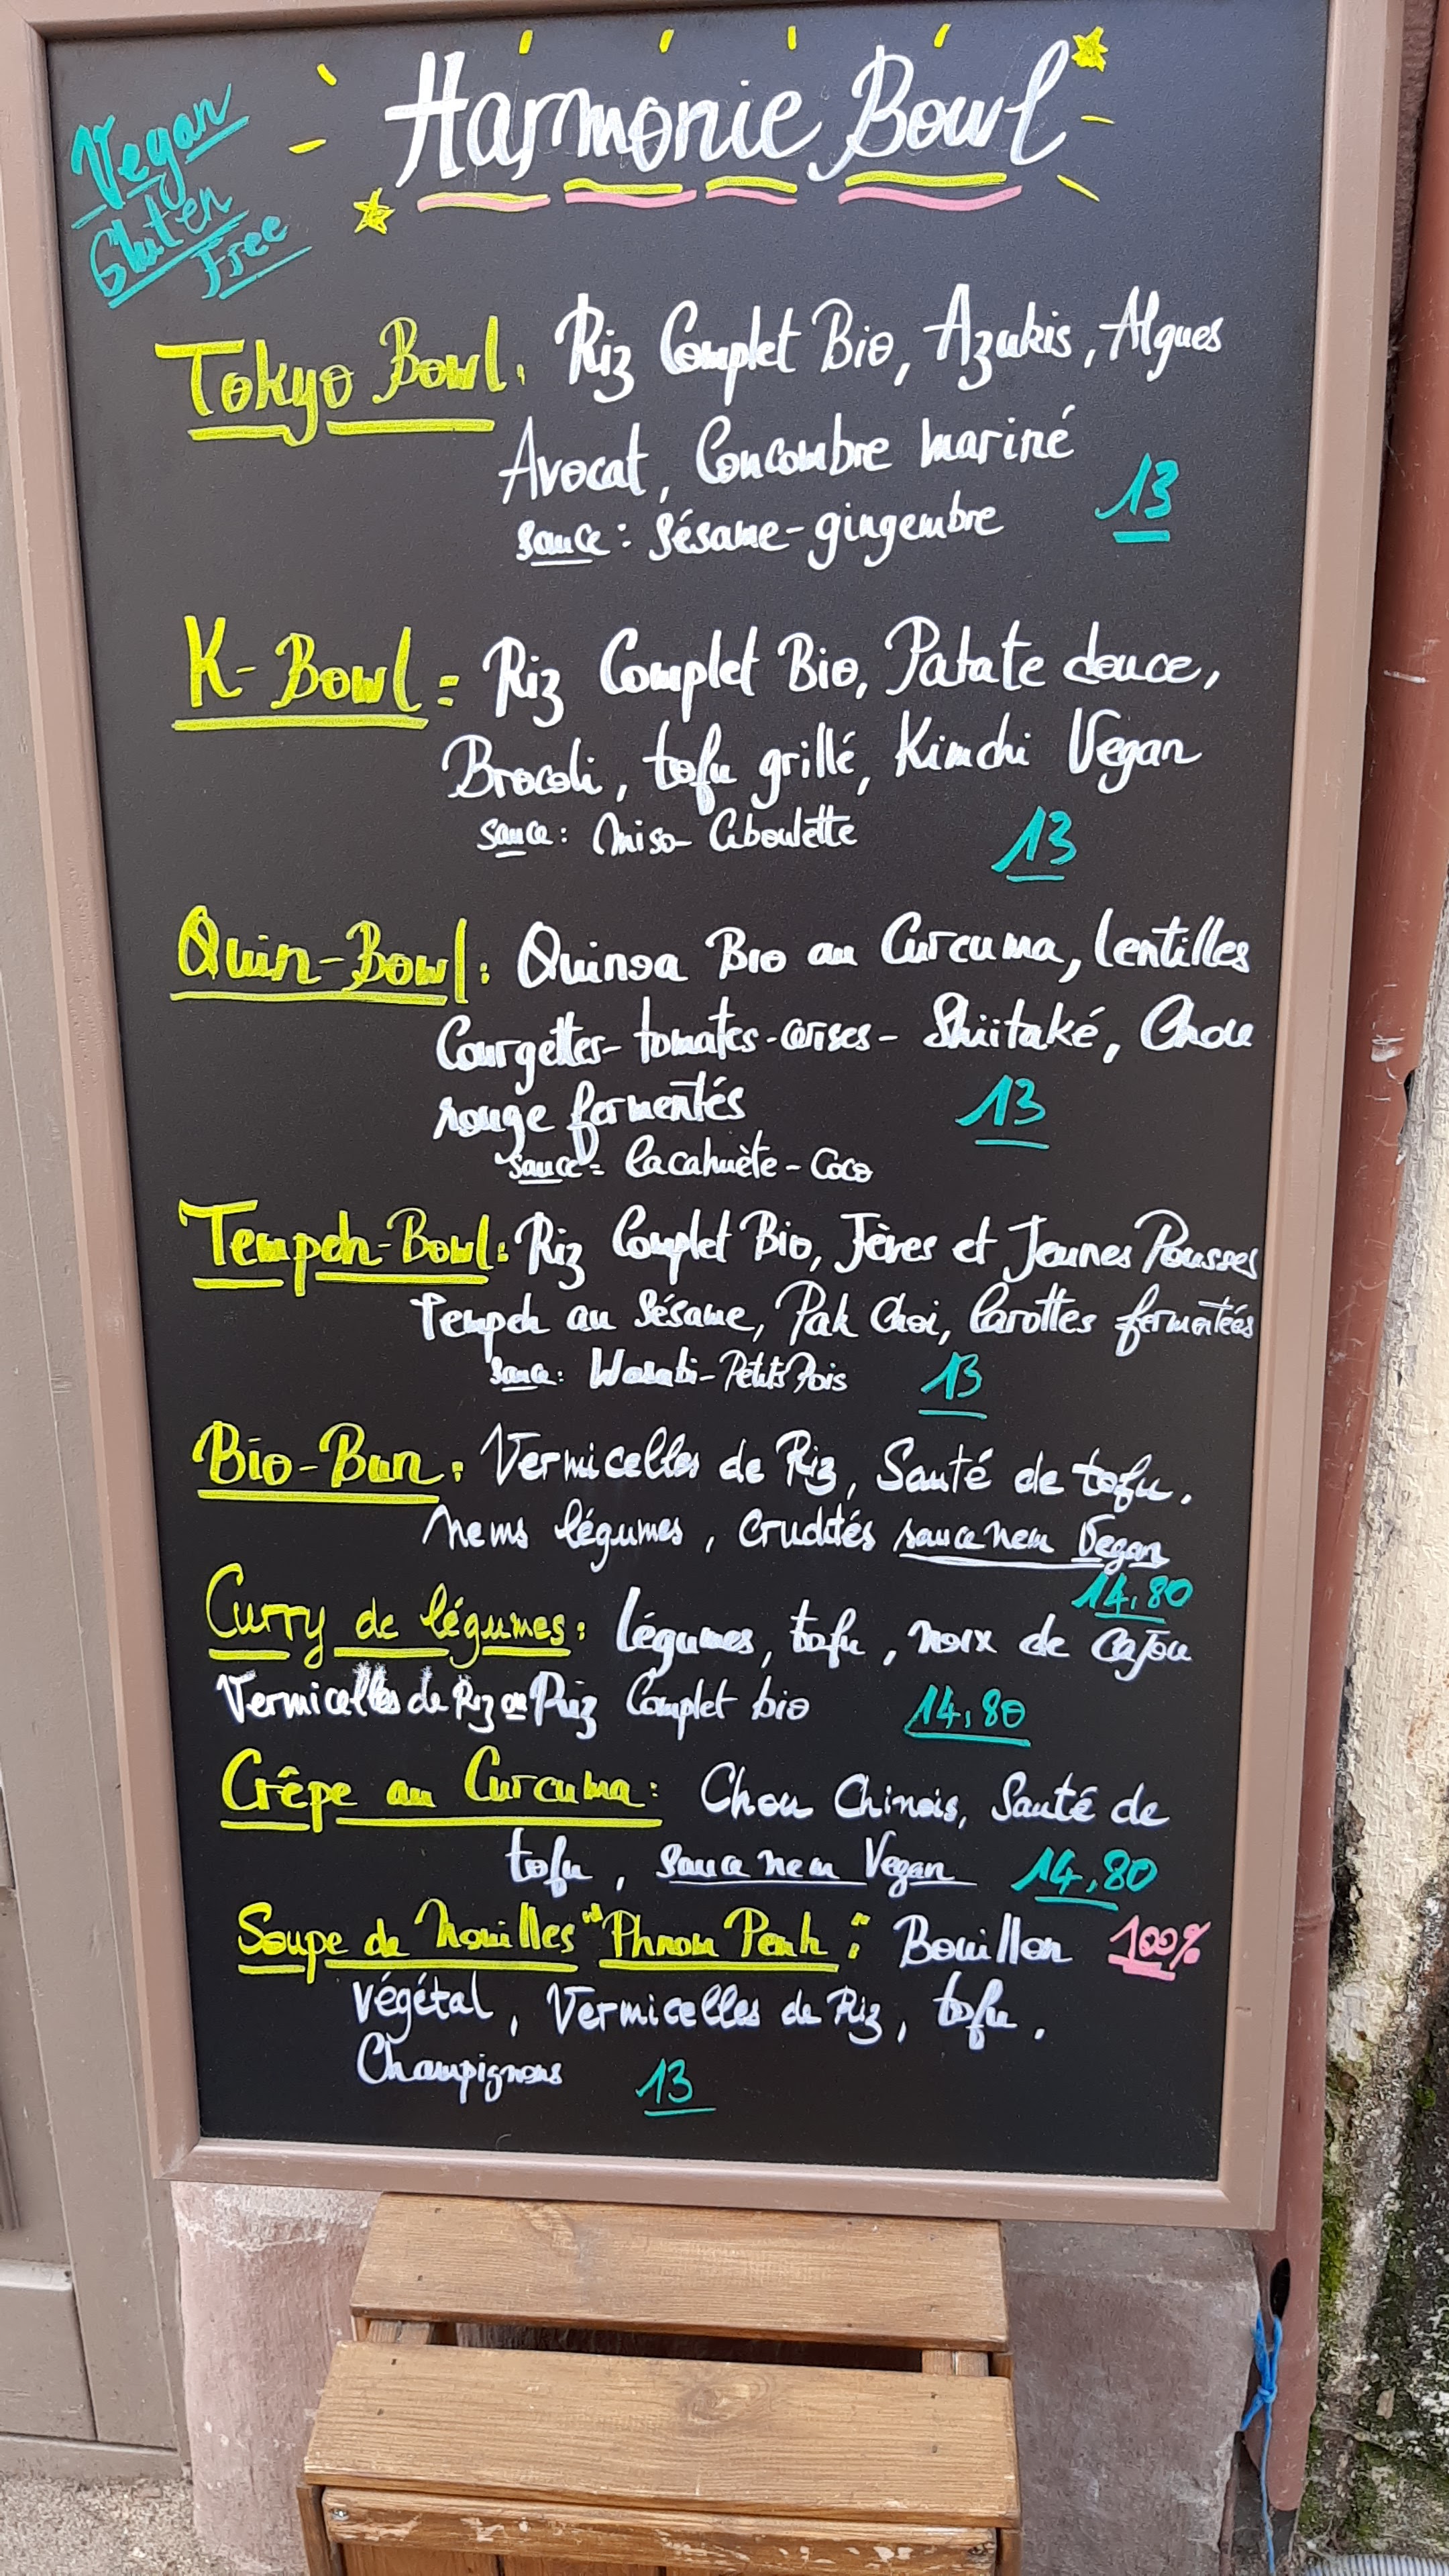 Harmonie Bowl
Vegan
Gluten
Free
Tokyo Bowl. Riz Complet Bio, Azukis, Algues
Avocat, Concombre mariné
sauce: sésame-gingembre 13
K-Bowl = Riz Complet Bio, Patate douce,
Brocoli, tofu grillé, Kimchi Vegan
sauce: miso-Ciboulette 13
Quin-Bowl: Quinoa Bio au Curcuma, lentilles
Courgettes-tomates-cerises-Shiitaké, Chou
rouge fermentés 13
sauce = Cacahuète-Coco
Tempeh-Bowl: Riz Complet Bio, Fèves et Jeunes Pousses
Tempeh au Sésame, Pak Choi, Carottes fermentées
sauce: Wasabi-Petits Pois 13
Bio-Bun: Vermicelles de Riz, Sauté de tofu.
Nems légumes, crudités sauce nem Vegan
14,80
Curry de légumes: Légumes, tofu, noix de Cajou
Vermicelles de Riz ou Riz Complet bio 14,80
Crêpe au Curcuma: Chou Chinois, Sauté de
tofu, sauce nem Vegan 14,80
Soupe de Nouilles "Phnom Penh": Bouillon 100%
végétal, Vermicelles de Riz, tofu.
Champignons 13